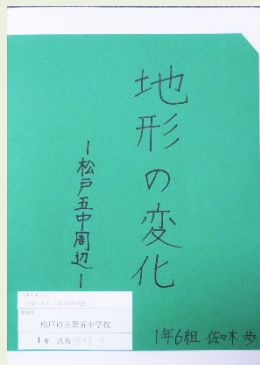 地形の変化
ー松戸五中周辺ー
松戸市立第五中学校
1年 氏名 佐々木 歩
1年6組 佐々木 歩